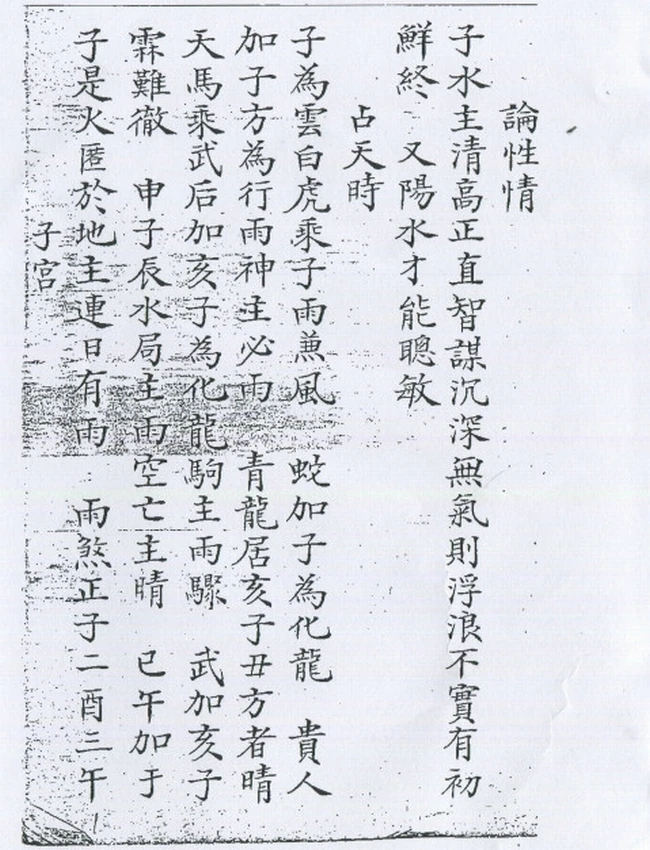 論性情
子水主清高正直智謀沉深無氣則浮浪不實有初
鮮終　又陽水才能聰敏
占天時
子為雲白虎乘子雨兼風　蛇加子為化龍　貴人
加子方為行雨神主必雨　青龍居亥子丑方者晴
天馬乘武后加亥子為化龍駒主雨驟　武加亥子
霖難徹　申子辰水局主雨空亡主晴　巳午加于
子是火匿於地主連日有雨　雨煞正子二酉三午
子宮